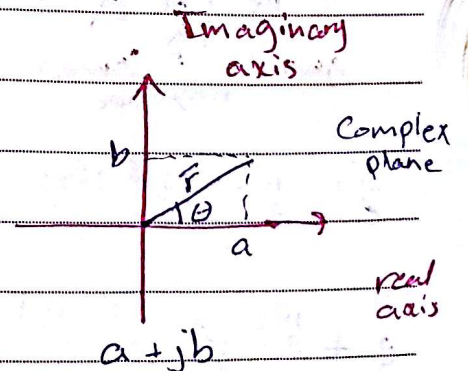 Imaginary
axis
Complex
plane
b
r̄
θ
a
real
axis
a + jb